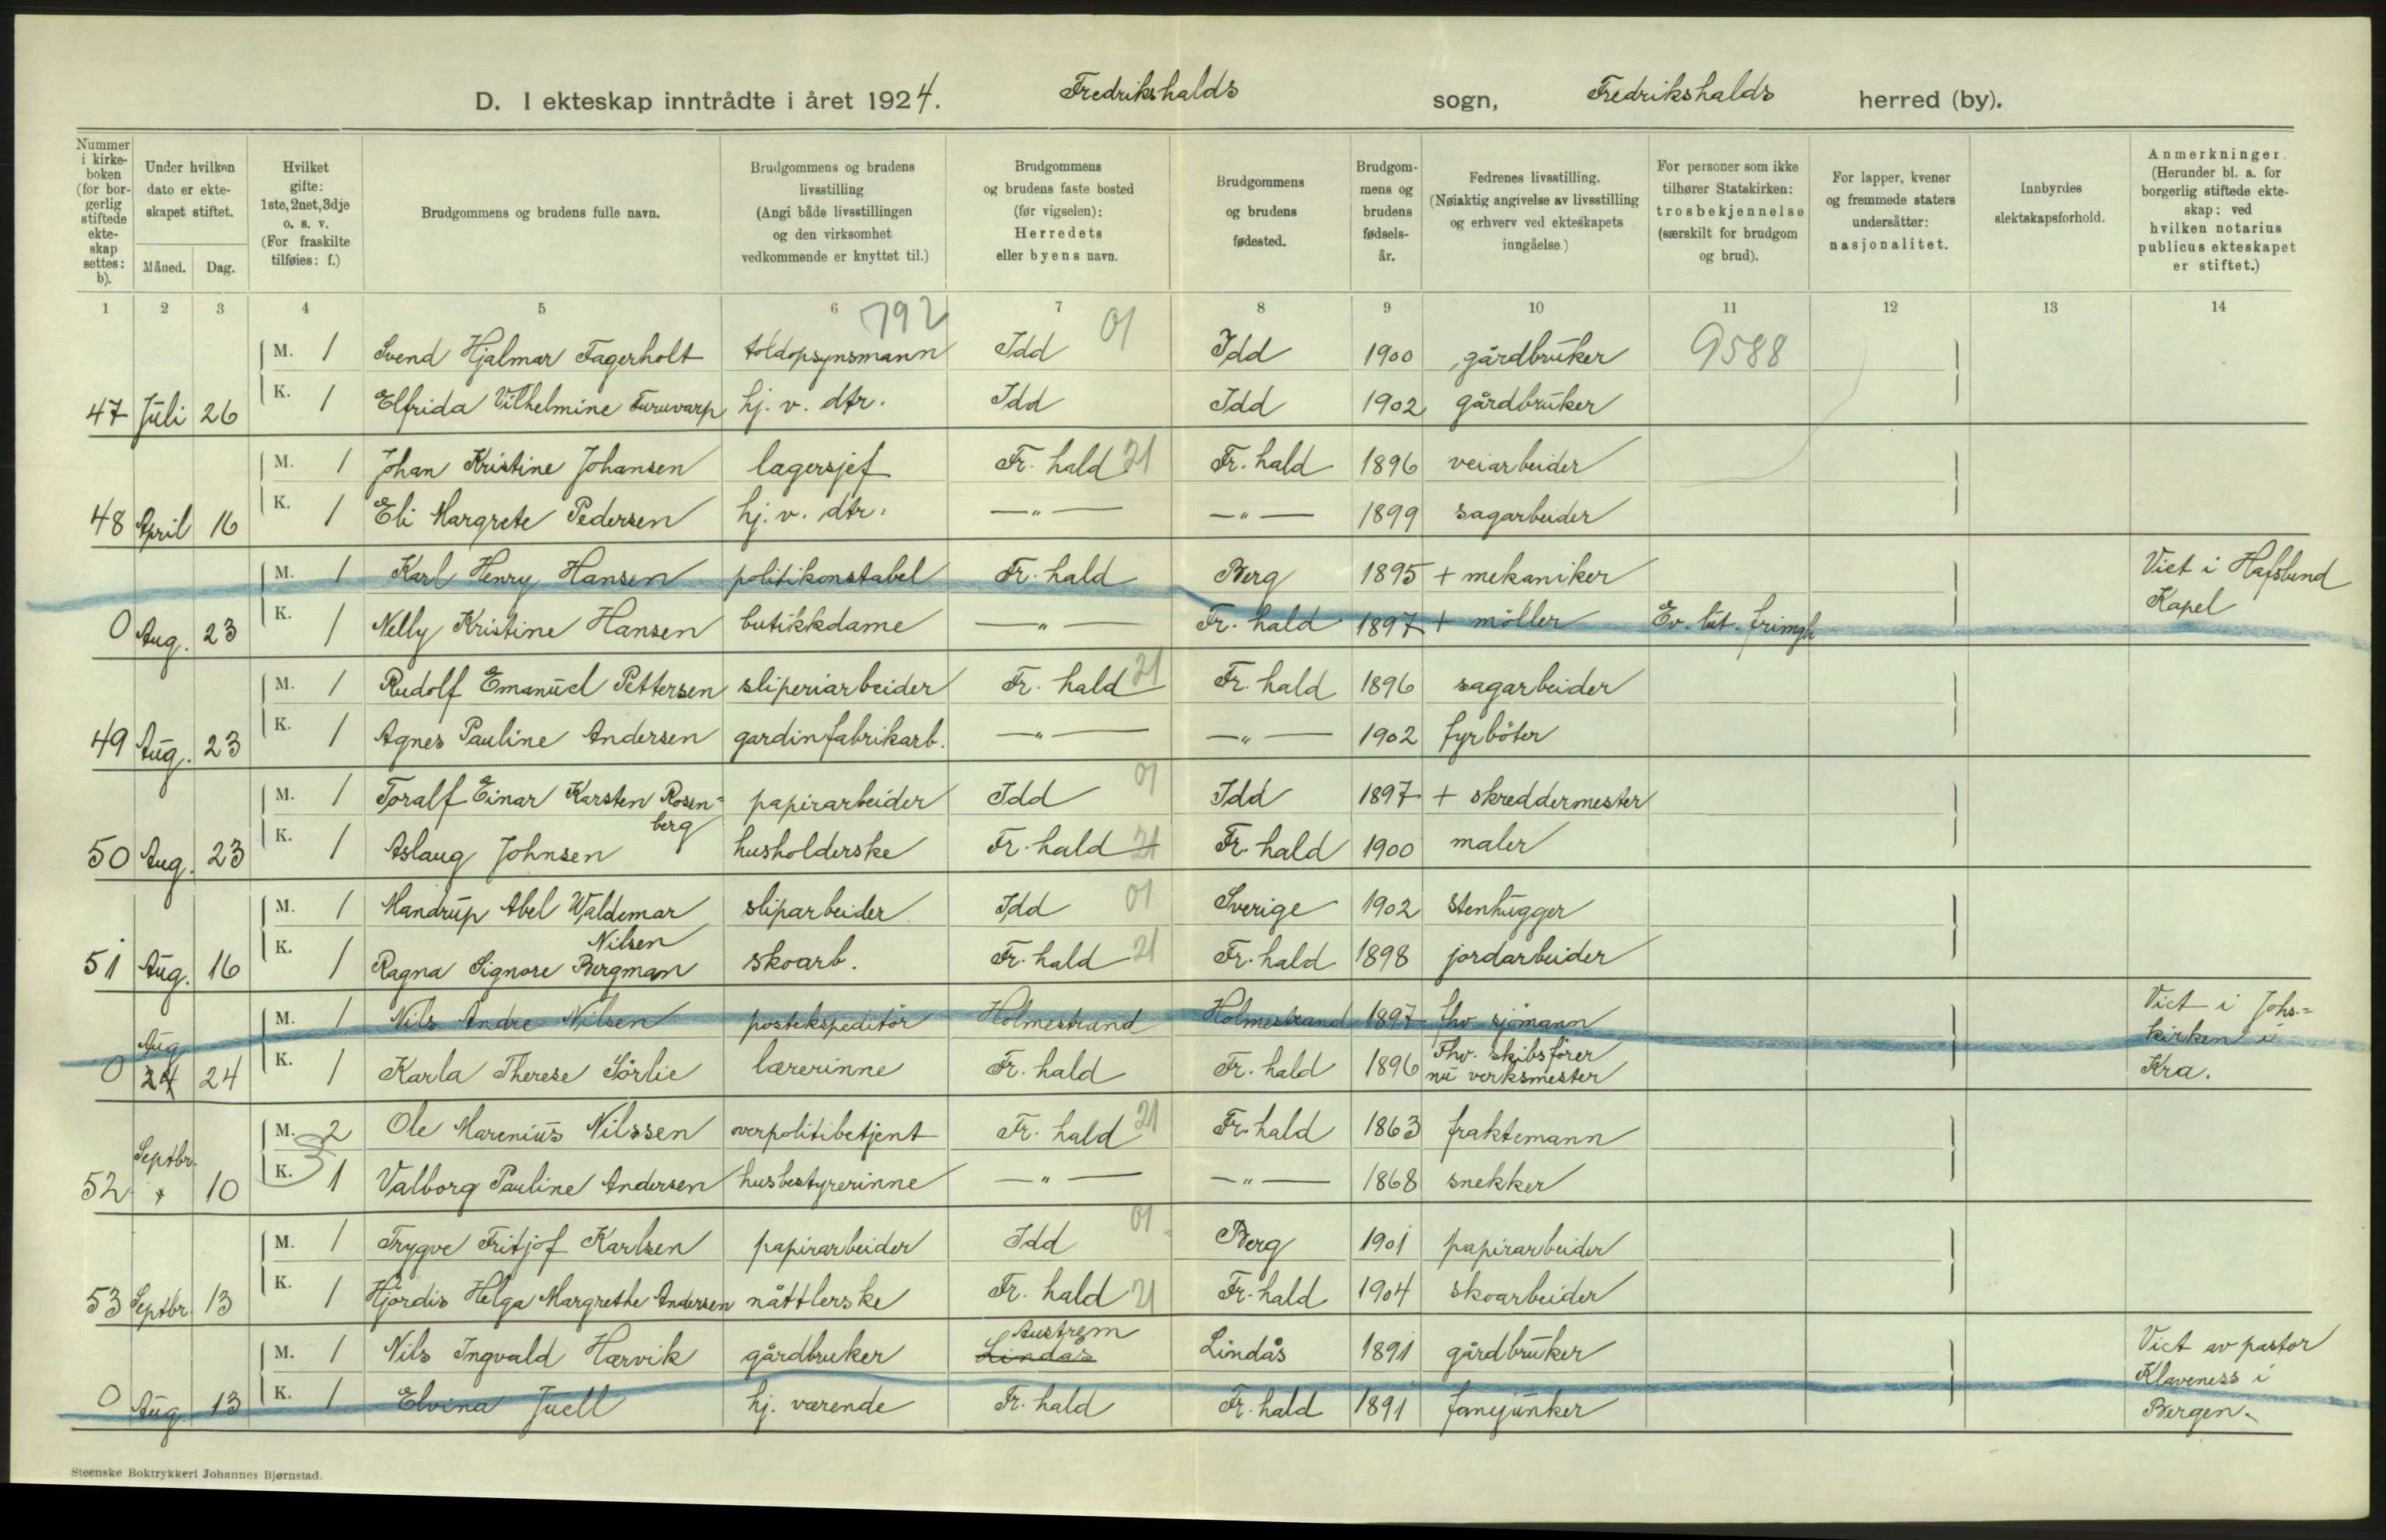 D. I ekteskap inntrådte i året 1924. Fredrikshalds sogn, Fredrikshalds herred (by).
Nummer i kirke- boken (for bor- gerlig stiftede ekte- skap settes: b).
Under hvilken dato er ekte- skapet stiftet.
Måned. Dag.
Hvilket gifte: 1ste, 2net, 3dje o. s. v. (For fraskilte tilføies: f.)
Brudgommens og brudens fulle navn.
Brudgommens og brudens livsstilling (Angi både livsstillingen og den virksomhet vedkommende er knyttet til.)
Brudgommens og brudens faste bosted (før vigselen): Herredets eller byens navn.
Brudgommens og brudens fødested.
Brudgom- mens og brudens fødsels- år.
Fedrenes livsstilling. (Nøiaktig angivelse av livsstilling og erhverv ved ekteskapets inngåelse.)
For personer som ikke tilhører Statskirken: trosbekjennelse (særskilt for brudgom og brud).
For lapper, kvener og fremmede staters undersåtter: nasjonalitet.
Innbyrdes slektskapsforhold.
Anmerkninger. (Herunder bl. a. for borgerlig stiftede ekte- skap: ved hvilken notarius publicus ekteskapet er stiftet.)
1 2 3 4 5 6 7 8 9 10 11 12 13 14
792 01
M. 1 Svend Hjalmar Fagerholt toldopsynsmann Idd Idd 1900 gårdbruker 9588
47 Juli 26 K. 1 Elfrida Vilhelmine Furuvarp hj. v. dtr. Idd Idd 1902 gårdbruker
M. 1 Johan Kristine Johansen lagersjef Fr. hald 21 Fr. hald 1896 veiarbeider
48 April 16 K. 1 Eli Margrete Pedersen hj. v. dtr. —"— —"— 1899 sagarbeider
M. 1 Karl Henry Hansen politikonstabel Fr. hald Berg 1895 + mekaniker Viet i Hafslund
0 Aug. 23 K. 1 Nelly Kristine Hansen butikkdame —"— Fr. hald 1897 + möller Ev. lut. frimgh Kapel
M. 1 Rudolf Emanuel Pettersen sliperiarbeider Fr. hald 21 Fr. hald 1896 sagarbeider
49 Aug. 23 K. 1 Agnes Pauline Andersen gardinfabrikarb. —"— —"— 1902 fyrböter
M. 1 Toralf Einar Karsten Rosen= papirarbeider Idd 01 Idd 1897 + skreddermester
berg
50 Aug. 23 K. 1 Aslaug Johnsen husholderske Fr. hald 21 Fr. hald 1900 maler
M. 1 Mandrup Abel Waldemar sliparbeider Idd 01 Sverige 1902 stenhugger
Nilsen
51 Aug. 16 K. 1 Ragna Signore Bergman skoarb. Fr. hald 21 Fr. hald 1898 jordarbeider
M. 1 Nils Andre Nilsen postekspeditör Holmestrand Holmestrand 1897 fhv. sjömann Viet i Johs.=
Aug kirken i
0 24 24 K. 1 Karla Therese Sörlie lærerinne Fr. hald Fr. hald 1896 Fhv. skibsförer
nu verksmester Kra.
M. 2 Ole Marenius Nilssen overpolitibetjent Fr. hald 21 Fr. hald 1863 fraktemann
Septbr. 3
52 10 K. 1 Valborg Pauline Andersen husbestyrerinne —"— —"— 1868 snekker
M. 1 Trygve Fritjof Karlsen papirarbeider Idd 01 Berg 1901 papirarbeider
53 Septbr. 13 K. 1 Hjördis Helga Margrethe Andersen nåttlerske Fr. hald 21 Fr. hald 1904 skoarbeider
Austrem
M. 1 Nils Ingvald Hærvik gårdbruker Lindås Lindås 1891 gårdbruker Viet av pastor
Klaveness i
0 Aug. 13 K. 1 Elvina Juell hj. værende Fr. hald Fr. hald 1891 fanejunker Bergen.
Steenske Boktrykkeri Johannes Bjørnstad.